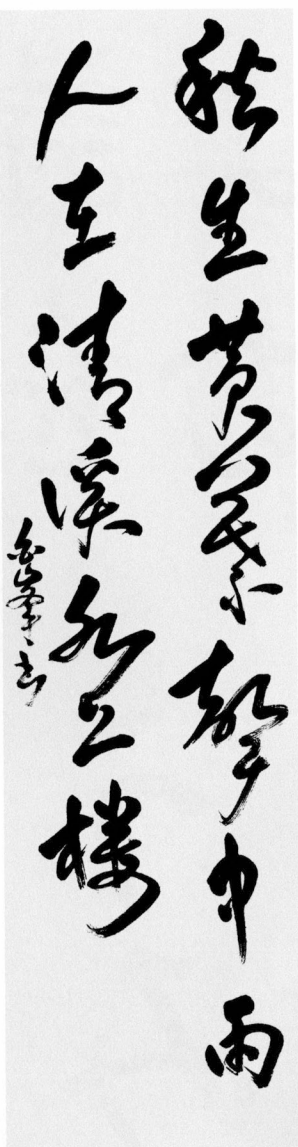 秋生黄葉聲中雨
人在清溪水上楼